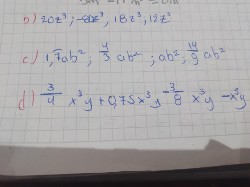 b) 20z³; -80z³, 18z³, 12z³
c) 1,7ab²; 4/3 ab²; ab²; 14/9 ab²
d) 3/4 x³y + 0,75x³y - 3/8 x³y - x³y